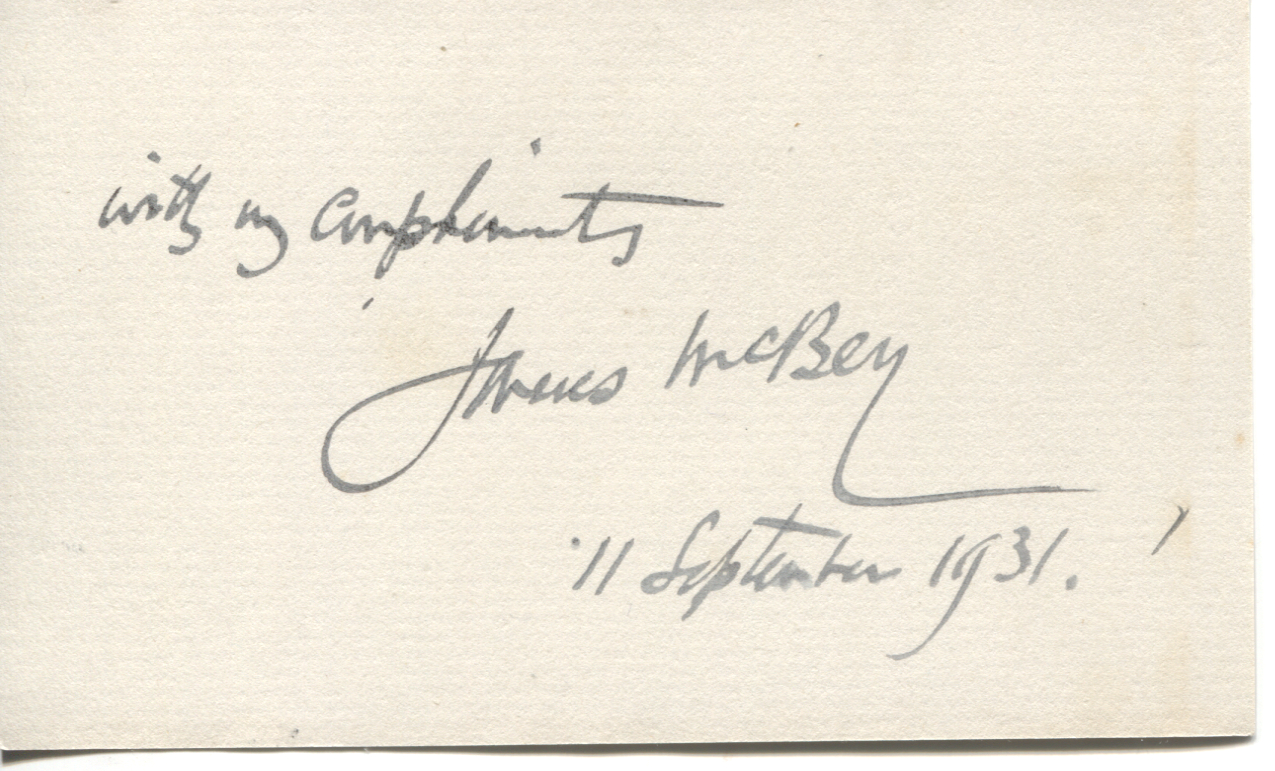 with my compliments
James McBey
11 September 1931.